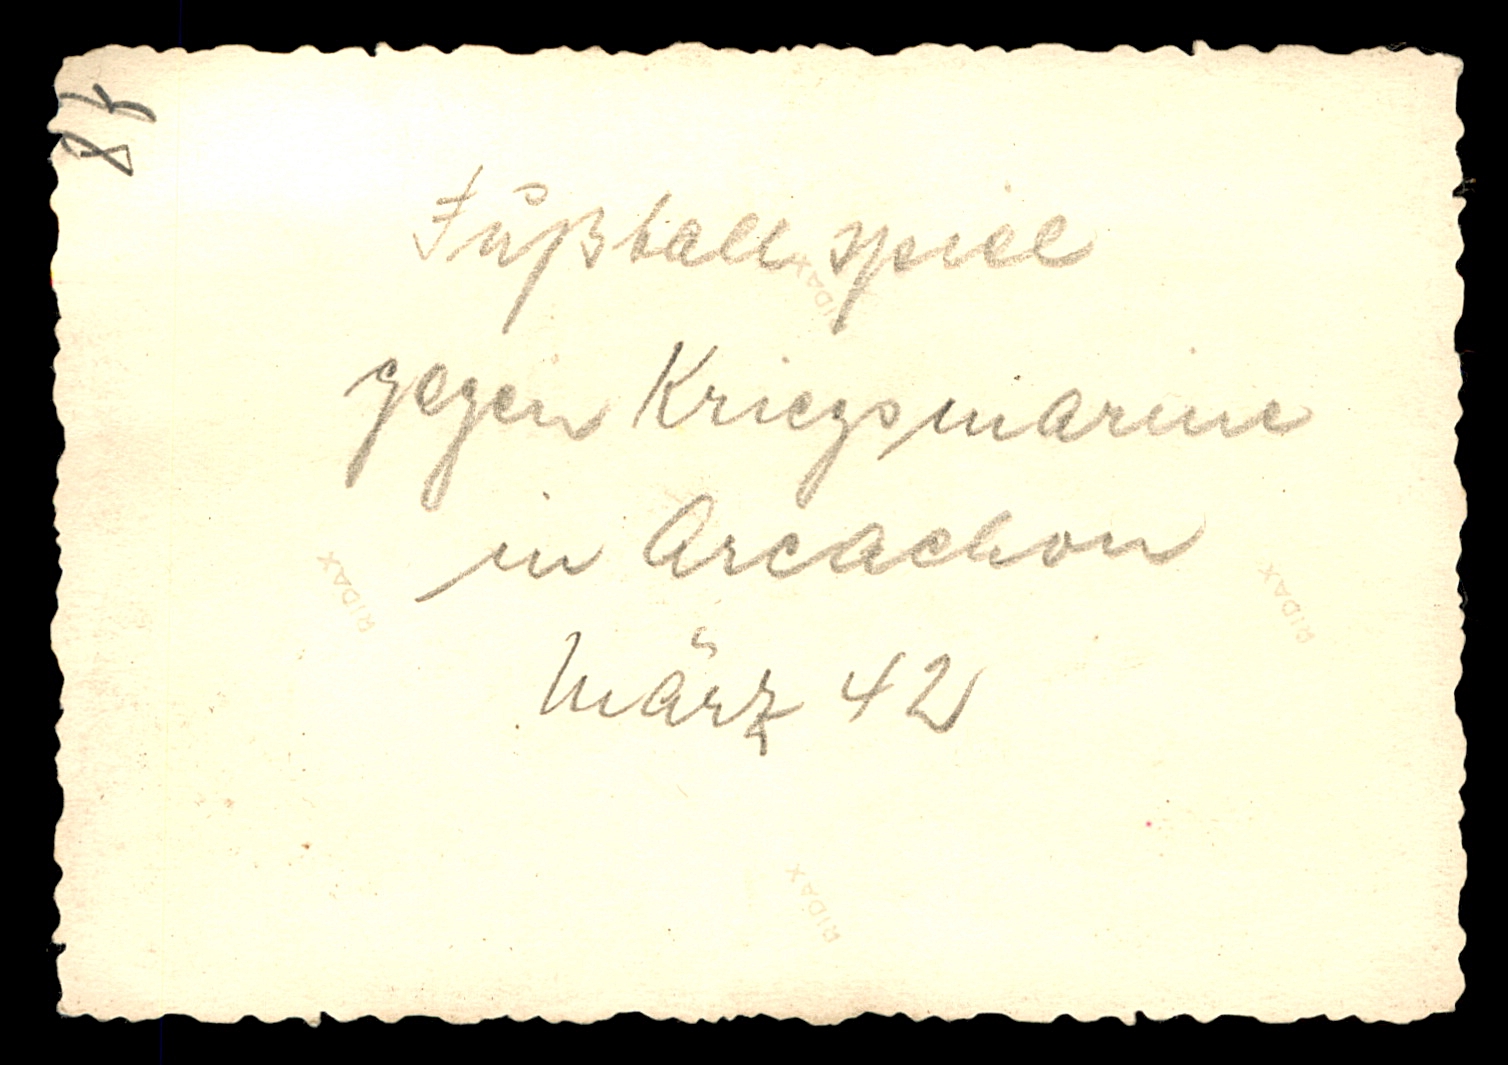 Fußballspiel
gegen Kriegsmarine
in Arcachon
März 42
RIDAX
RIDAX
RIDAX
RIDAX